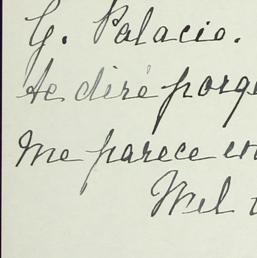 G. Palacio.
te diré porqe
me parece en
Wel